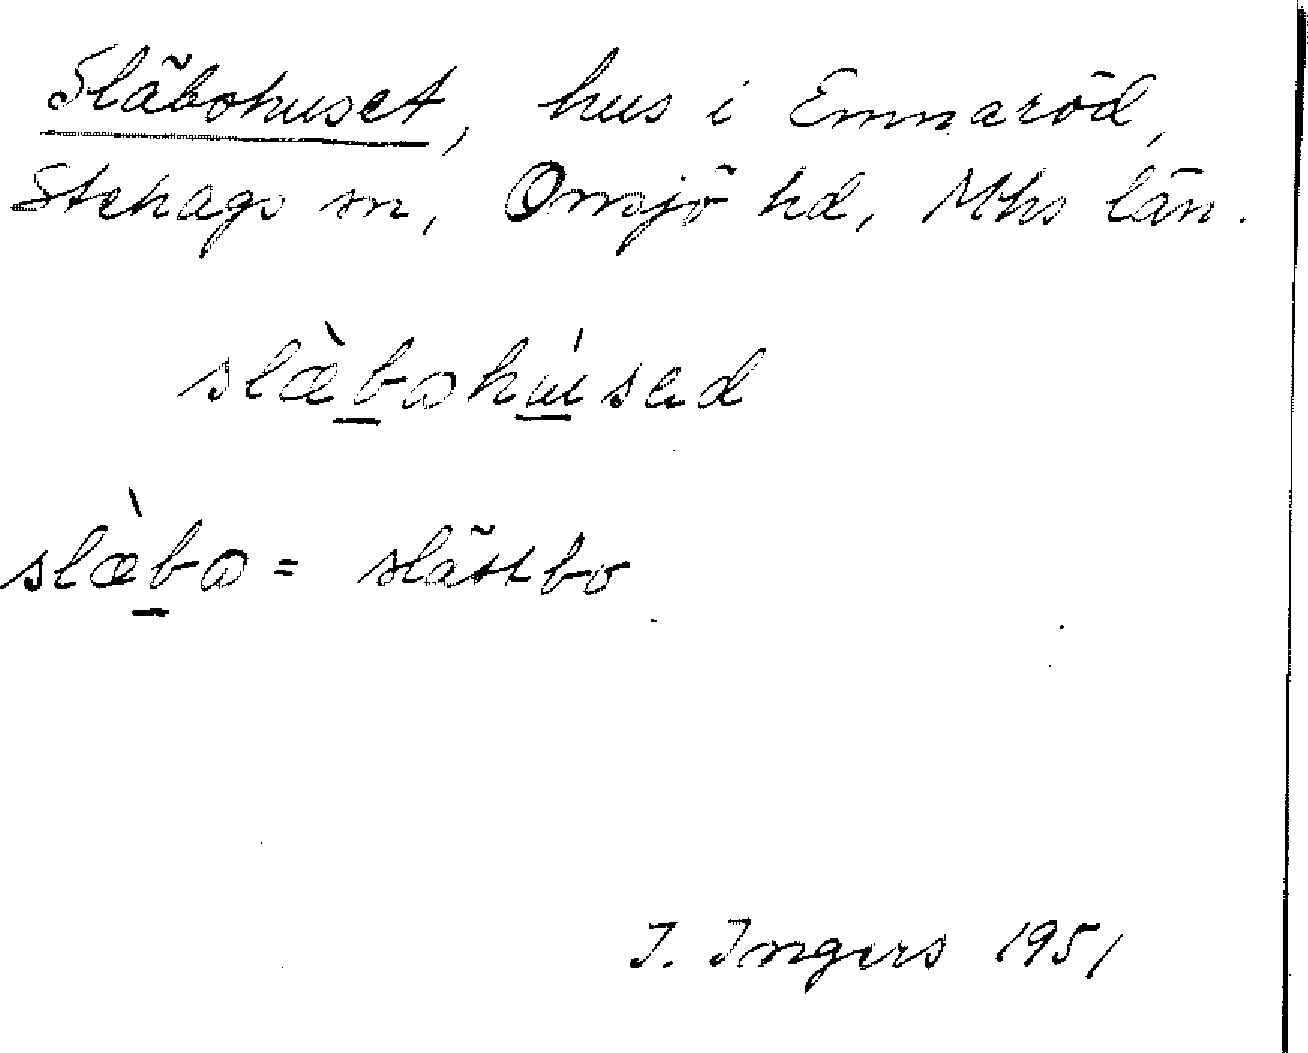 Släbohuset, hus i Emmaröd,
Stehags sn, Onsjö hd, Mhs län.
slæ̀bohúsed
slæ̀bo = slättbo
I. Ingers 1951